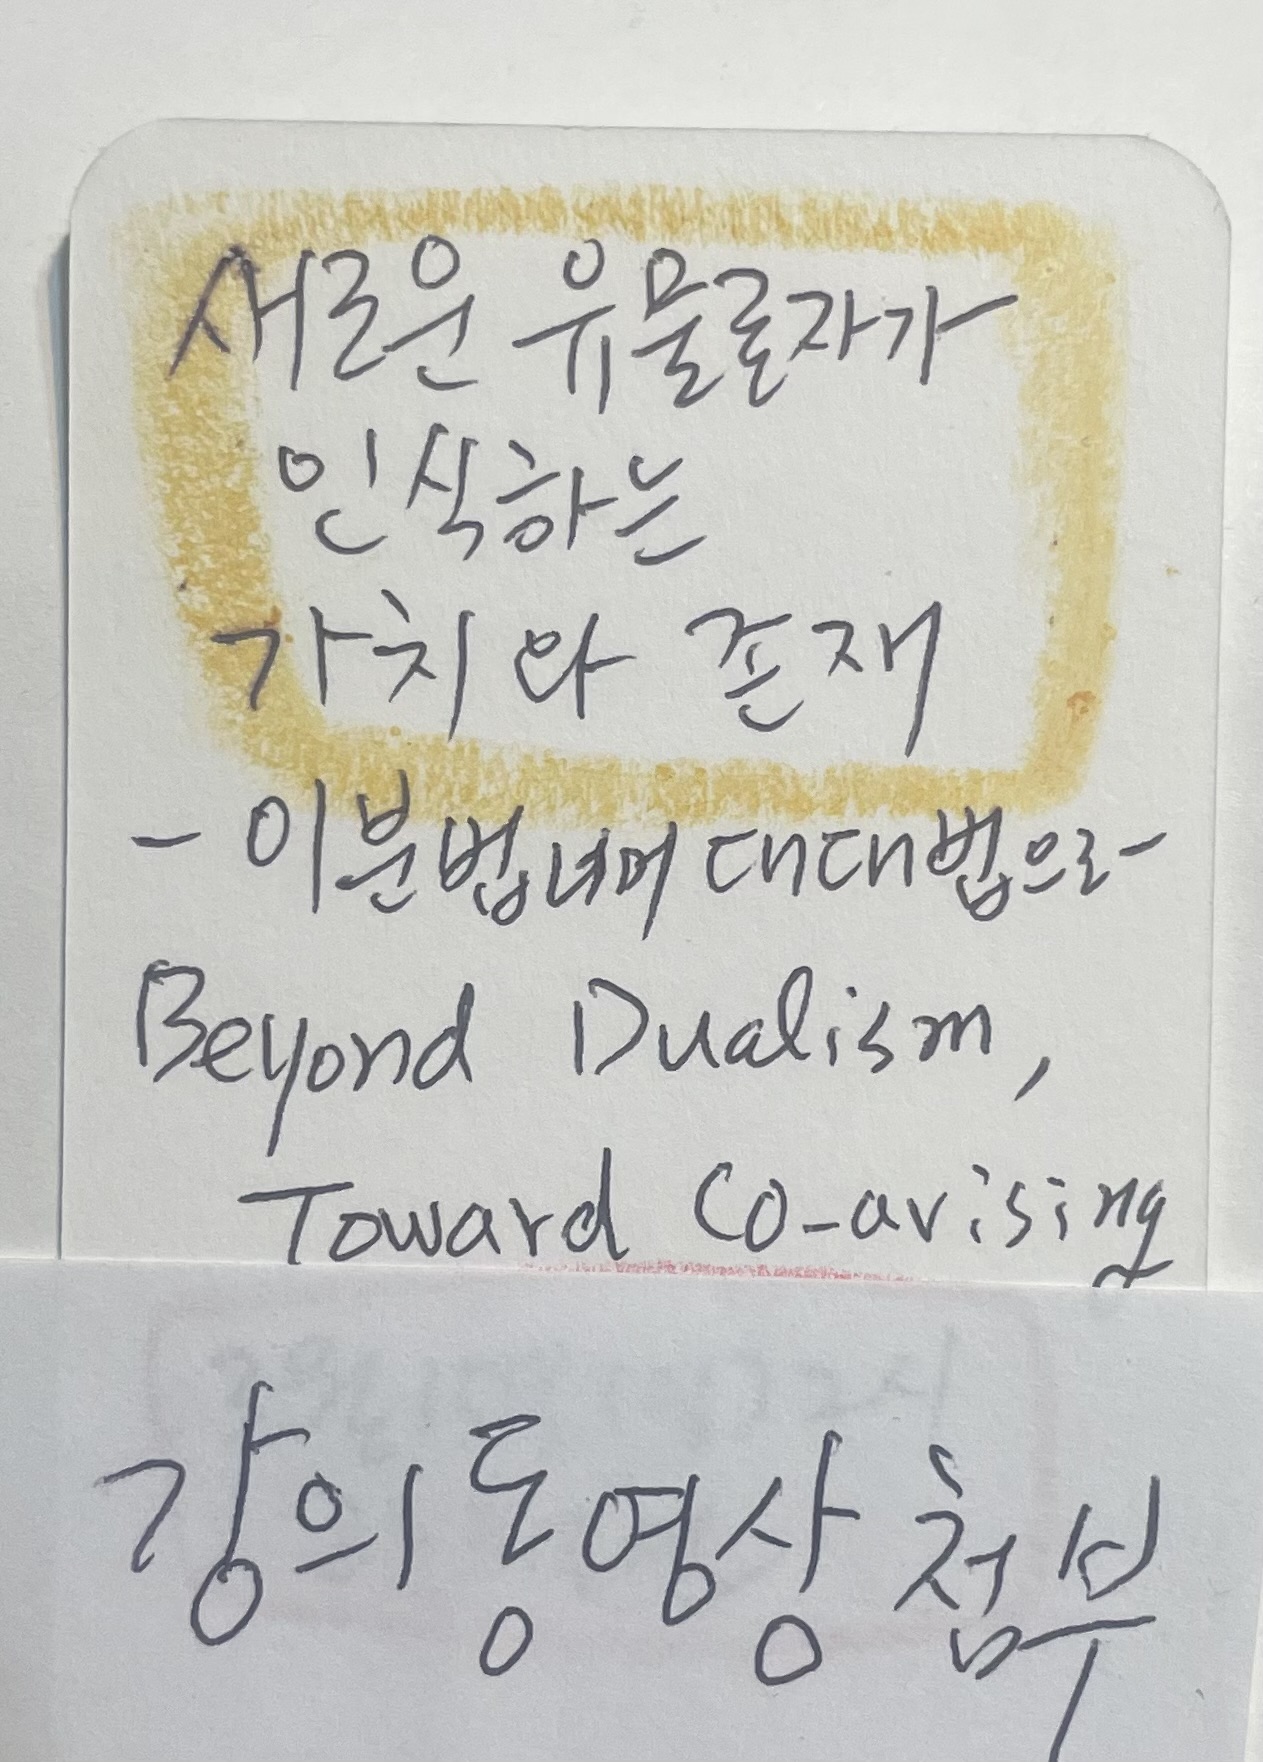 새로운 유물론자가
인식하는
가치와 존재
- 이분법너머 대대법으로
Beyond Dualism,
Toward Co-arising
강의 동영상 첨부